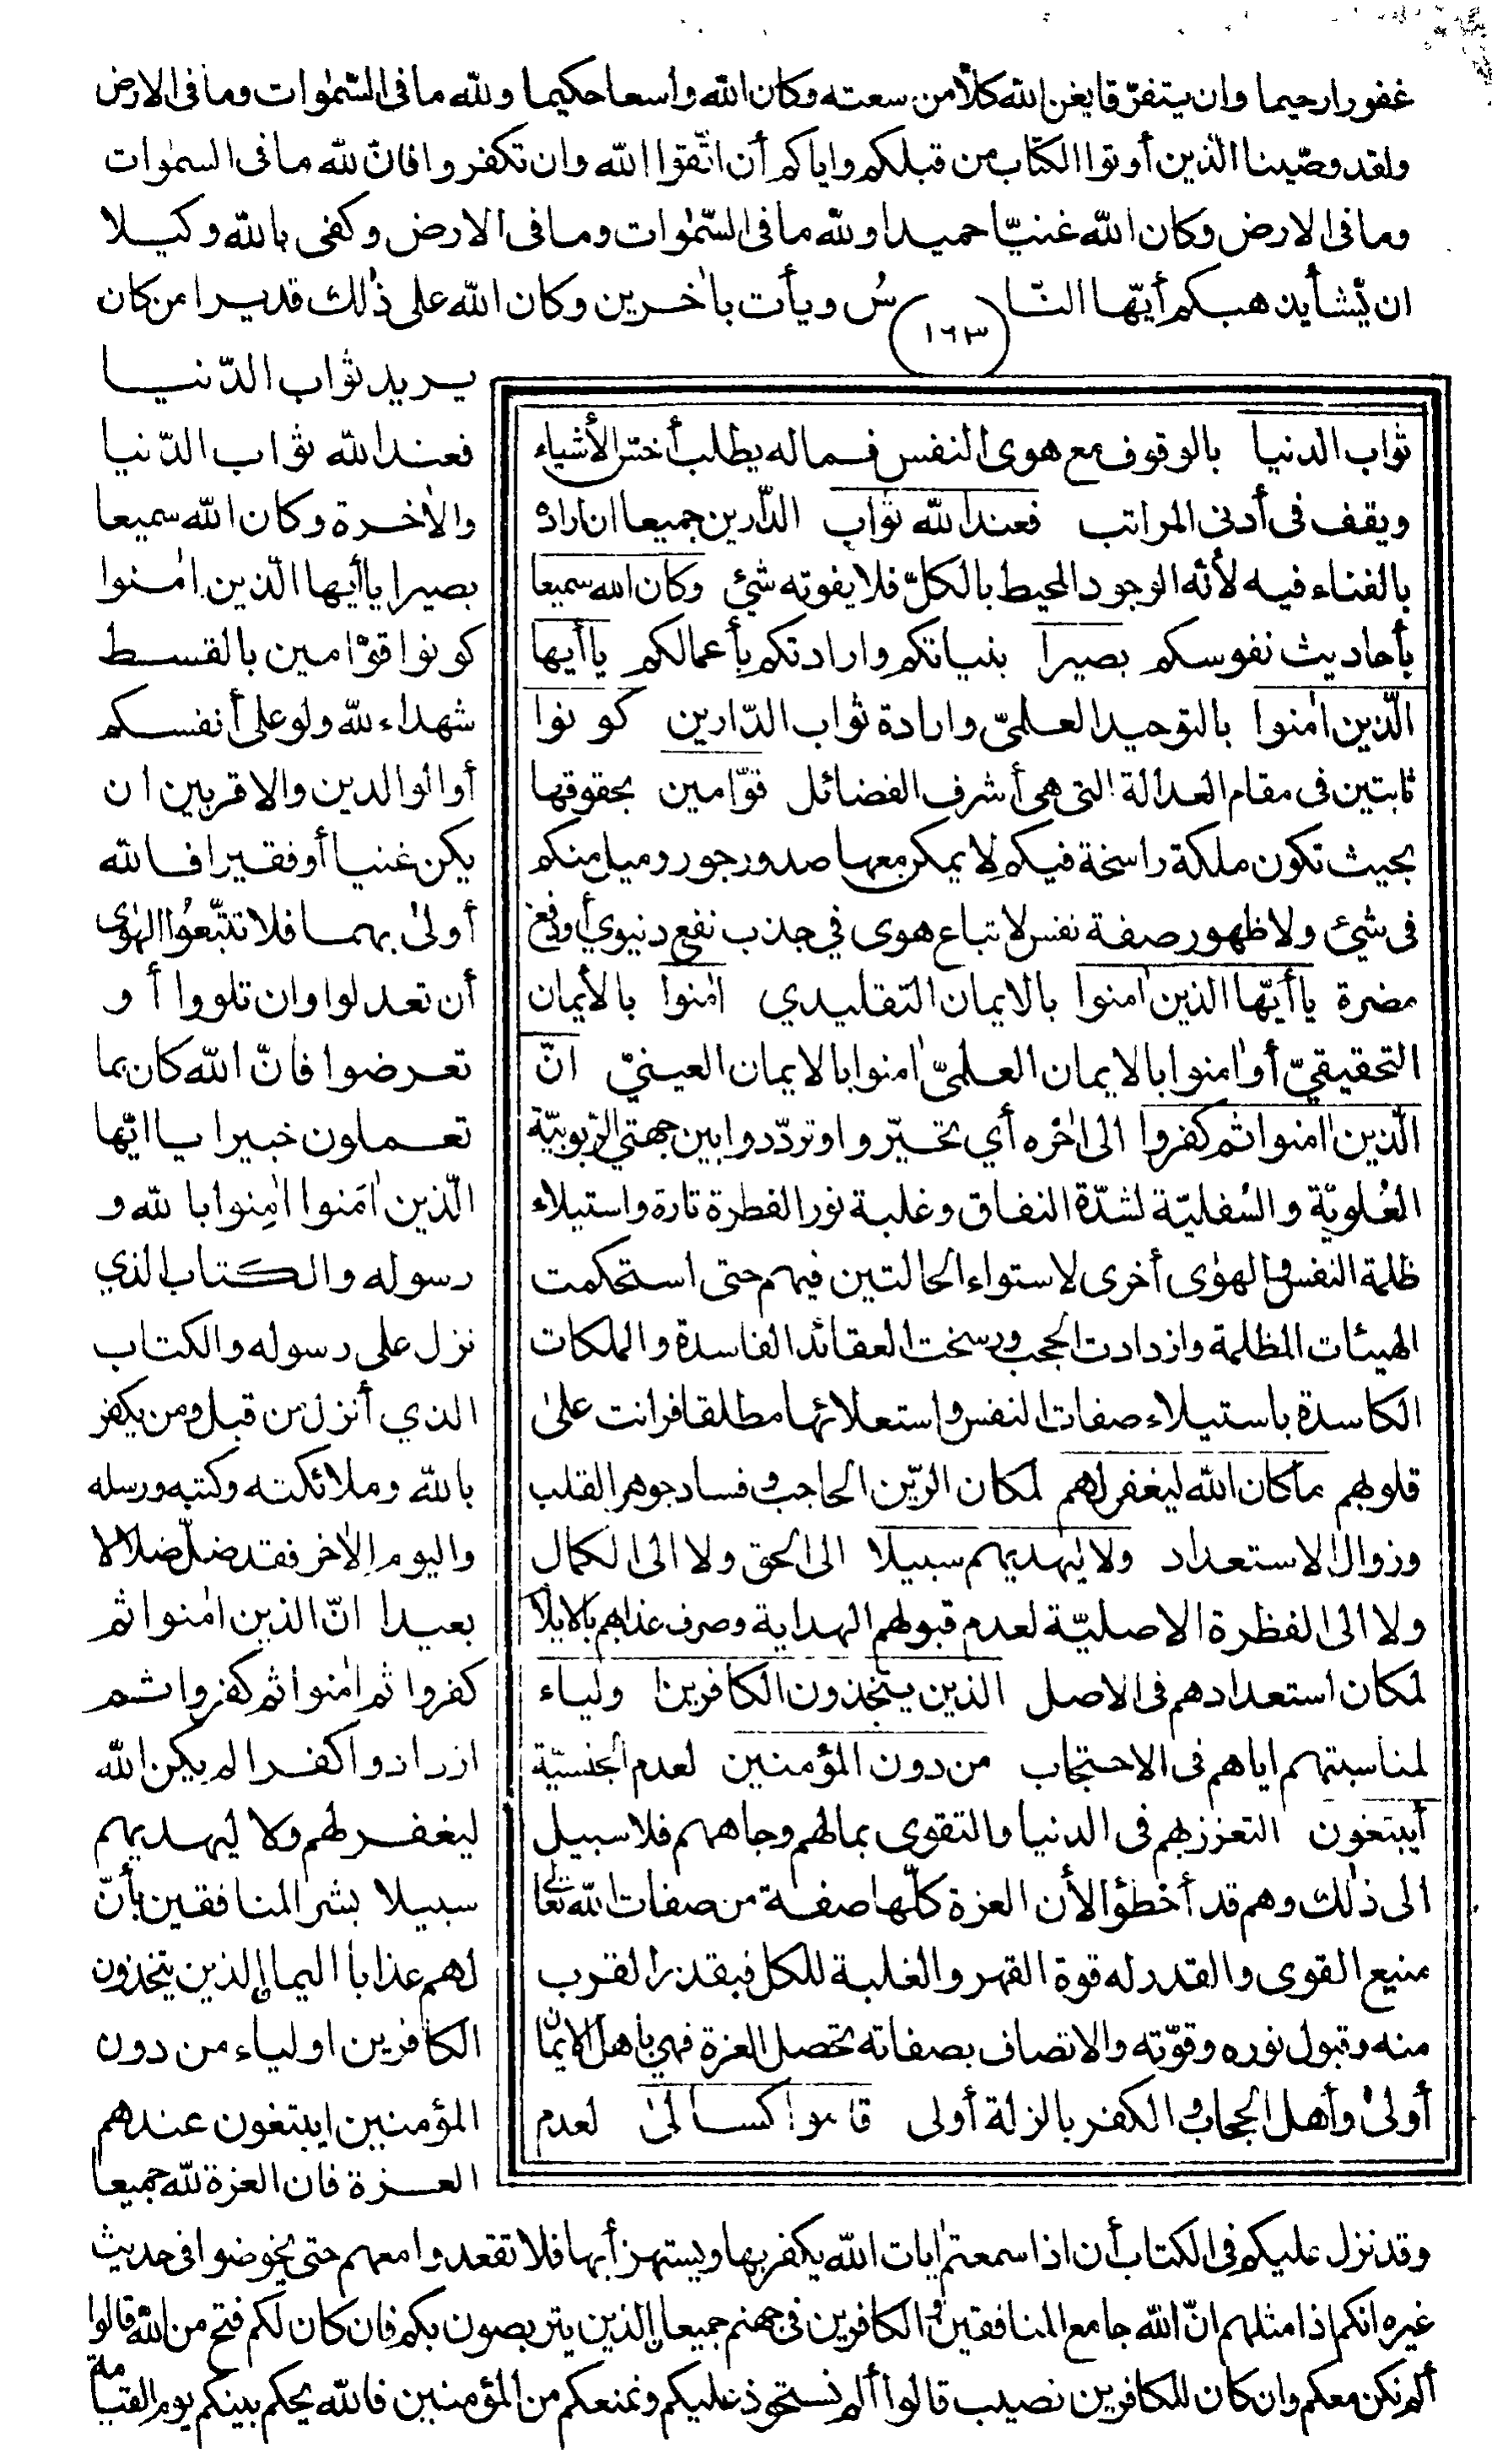 غفورا رحيما وان يتفرّقا يغن الله كلاّ من سعته وكان الله واسعا حكيما ولله ما فى السّمٰوات وما فى الارض
ولقد وصّينا الّذين أوتوا الكتاب من قبلكم واياكم أن اتّقوا الله وان تكفروا فانّ لله ما فى السمٰوات
وما فى الارض وكان الله غنيّا حميدا ولله ما فى السّمٰوات وما فى الارض وكفى بالله وكيلا
ان يّشأ يذهبكم أيّها النّاسُ ويأت باٰخرين وكان الله على ذٰلك قديرا من كان
١٦٣
يريد ثواب الدّنيا
فعند الله ثواب الدّنيا
والاٰخرة وكان الله سميعا
بصيرا يا أيها الّذين اٰمنوا
كونوا قوّامين بالقسط
شهداء لله ولو على أنفسكم
أو الوالدين والاقربين ان
يكن غنيا أو فقيرا فالله
أولىٰ بهما فلا تتّبعُوا الهوٰى
أن تعدلوا وان تلووا أو
تعرضوا فانّ الله كان بما
تعملون خبيرا يا ايّها
الّذين اٰمَنوا اٰمِنوا بالله و
رسوله والكتاب الذي
نزل على رسوله والكتاب
الذي أنزل من قبل ومن يكفر
بالله وملائكته وكتبه ورسله
واليوم الاٰخر فقد ضلّ ضلالا
بعيدا انّ الذين اٰمنوا ثم
كفروا ثم اٰمنوا ثم كفروا ثم
ازدادوا كفرا لم يكن الله
ليغفر لهم ولا ليهديهم
سبيلا بشر المنافقين بأنّ
لهم عذابا اليما الذين يتخذون
الكافرين اولياء من دون
المؤمنين ايبتغون عندهم
العزة فان العزة لله جميعا
ثواب الدنيا بالوقوف مع هوى النفس فماله يطلب أخسّ الأشياء
ويقف فى أدنى المراتب فعند الله ثواب الدّارين جميعا ان اراده
بالفناء فيه لأنّه الوجود المحيط بالكلّ فلا يفوته شئ وكان الله سميعا
بأحاديث نفوسكم بصيرا بنياتكم وارادتكم بأعمالكم يا أيها
الّذين اٰمنوا بالتوحيد العلمىّ وارادة ثواب الدّارين كونوا
ثابتين فى مقام العدالة التى هى أشرف الفضائل قوّامين بحقوقها
بحيث تكون ملكة راسخة فيكم لا يمكن معها صدور جور وميل منكم
فى شئ ولا ظهور صفة نفس لاتباع هوى في جذب نفع دنيوي أو دفع
مضرة يا أيّها الذين اٰمنوا بالايمان التقليدي اٰمنوا بالأيمان
التحقيقيّ أو اٰمنوا بالايمان العلمىّ اٰمنوا بالايمان العينيّ انّ
الّذين اٰمنوا ثم كفروا الى اٰخره أي تحيّروا وتردّدوا بين جهتي الرّبوبيّة
العُلويّة والسُفليّة لشدّة النفاق وغلبة نور الفطرة تارة واستيلاء
ظلمة النفس والهوٰى أخرى لاستواء الحالتين فيهم حتى استحكمت
الهيئات المظلمة وازدادت الحجب ورسخت العقائد الفاسدة والملكات
الكاسدة باستيلاء صفات النفس واستعلائها مطلقا فرانت علىٰ
قلوبهم ما كان الله ليغفر لهم لمكان الرّين الحاجب وفساد جوهر القلب
وزوال الاستعداد ولا ليهديهم سبيلا الى الحق ولا الى الكمال
ولا الى الفظرة الاصليّة لعدم قبولهم الهداية وصرف عذابهم بالايلا
لمكان استعدادهم فى الاصل الذين يتخذون الكافرين ولياء
لمناسبتهم اياهم فى الاحتجاب من دون المؤمنين لعدم الجنسيّة
أيبتغون التعزز بهم فى الدنيا والتقوى بمالهم وجاههم فلا سبيل
الى ذٰلك وهم قد أخطؤا لأن العزة كلّها صفة من صفات الله تعالى
منيع القوى والقدر له قوة القهر والغلبة للكل فبقدر القرب
منه وقبول نوره وقوّته والاتصاف بصفاته تحصل العزة فهي باهل الايمان
أولىٰ وأهل الحجاب والكفر بالزلة أولى قاموا كسالىٰ لعدم
وقد نزل عليكم فى الكتاب أن اذا سمعتم اٰيات الله يكفر بها ويستهزأ بها فلا تقعدوا معهم حتى يخوضوا فى حديث
غيره انكم اذا مثلهم انّ الله جامع المنافقين والكافرين فى جهنم جميعا الذين يتربصون بكم فان كان لكم فتح من الله قالوا
ألم نكن معكم وان كان للكافرين نصيب قالوا ألم نستحوذ عليكم ونمنعكم من المؤمنين فالله يحكم بينكم يوم القيامة